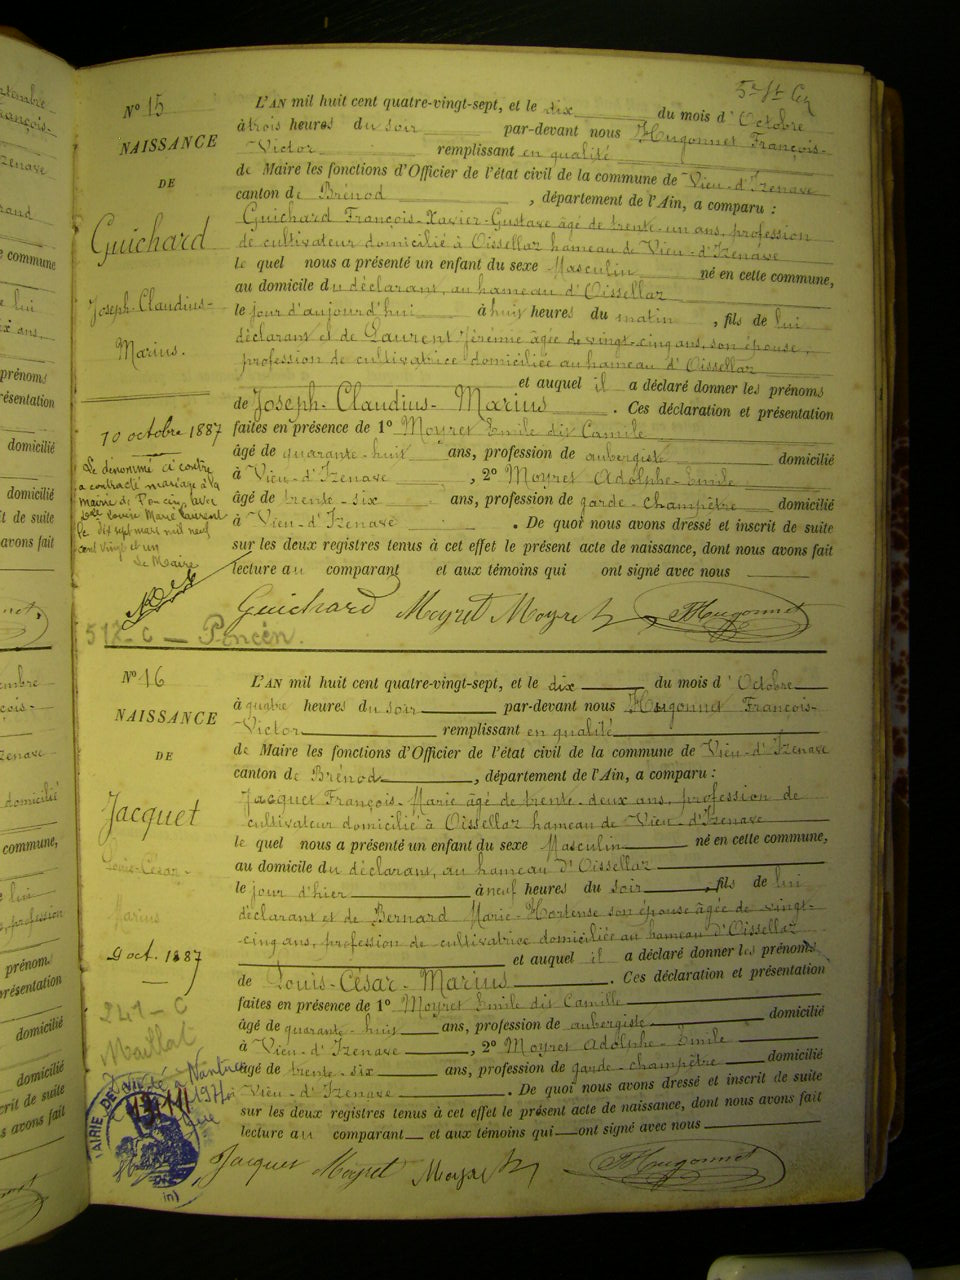 5e et der
Nº 15
NAISSANCE
DE
Guichard
Joseph-Claudius-
Marius.
10 octobre 1887
Le dénommé ci contre
a contracté mariage à la
mairie de Poncin avec
Delle Louise Marie Laurent
le dix sept mars mil neuf
cent vingt et un
Le Maire
512-C — Poncin.
L'AN mil huit cent quatre-vingt-sept, et le dix du mois d'Octobre
à trois heures du soir par-devant nous Hugonnet François-
Victor remplissant en qualité
de Maire les fonctions d'Officier de l'état civil de la commune de Vieu-d'Izenave
canton de Brénod, département de l'Ain, a comparu :
Guichard François-Xavier-Gustave âgé de trente-un ans, profession
de cultivateur domicilié à Oissellaz hameau de Vieu-d'Izenave
le quel nous a présenté un enfant du sexe Masculin né en cette commune,
au domicile du déclarant, au hameau d'Oissellaz
le jour d'aujourd'hui à huit heures du matin, fils de lui
déclarant et de Laurent Jérémie âgée de vingt-cinq ans, son épouse,
profession de cultivatrice domiciliée au hameau d'Oissellaz
et auquel il a déclaré donner les prénoms
de Joseph-Claudius-Marius. Ces déclaration et présentation
faites en présence de 1º Moyret Emile dit Camile
âgé de quarante-huit ans, profession de aubergiste domicilié
à Vieu-d'Izenave, 2º Moyret Adolphe-Emile
âgé de trente-six ans, profession de garde-champêtre domicilié
à Vieu-d'Izenave. De quoi nous avons dressé et inscrit de suite
sur les deux registres tenus à cet effet le présent acte de naissance, dont nous avons fait
lecture au comparant et aux témoins qui ont signé avec nous
Guichard Moyret Moyret Hugonnet
Nº 16
NAISSANCE
DE
Jacquet
Louis-César-
Marius
9 oct. 1887
241-C
Maillat
MAIRIE DE
L'AN mil huit cent quatre-vingt-sept, et le dix du mois d'Octobre
à quatre heures du soir par-devant nous Hugonnet François-
Victor remplissant en qualité
de Maire les fonctions d'Officier de l'état civil de la commune de Vieu-d'Izenave
canton de Brénod, département de l'Ain, a comparu :
Jacquet François-Marie âgé de trente-deux ans, profession de
cultivateur domicilié à Oissellaz hameau de Vieu-d'Izenave
le quel nous a présenté un enfant du sexe Masculin né en cette commune,
au domicile du déclarant, au hameau d'Oissellaz
le jour d'hier à neuf heures du soir, fils de lui
déclarant et de Bernard Marie-Hortense son épouse âgée de vingt-
cinq ans, profession de cultivatrice domiciliée au hameau d'Oissellaz
et auquel il a déclaré donner les prénoms
de Louis-César-Marius. Ces déclaration et présentation
faites en présence de 1º Moyret Emile dit Camille
âgé de quarante-huit ans, profession de aubergiste domicilié
à Vieu-d'Izenave, 2º Moyret Adolphe-Emile
âgé de trente-six ans, profession de garde-champêtre domicilié
Vieu-d'Izenave. De quoi nous avons dressé et inscrit de suite
sur les deux registres tenus à cet effet le présent acte de naissance, dont nous avons fait
lecture au comparant et aux témoins qui ont signé avec nous
Jacquet Moyret Moyret Hugonnet